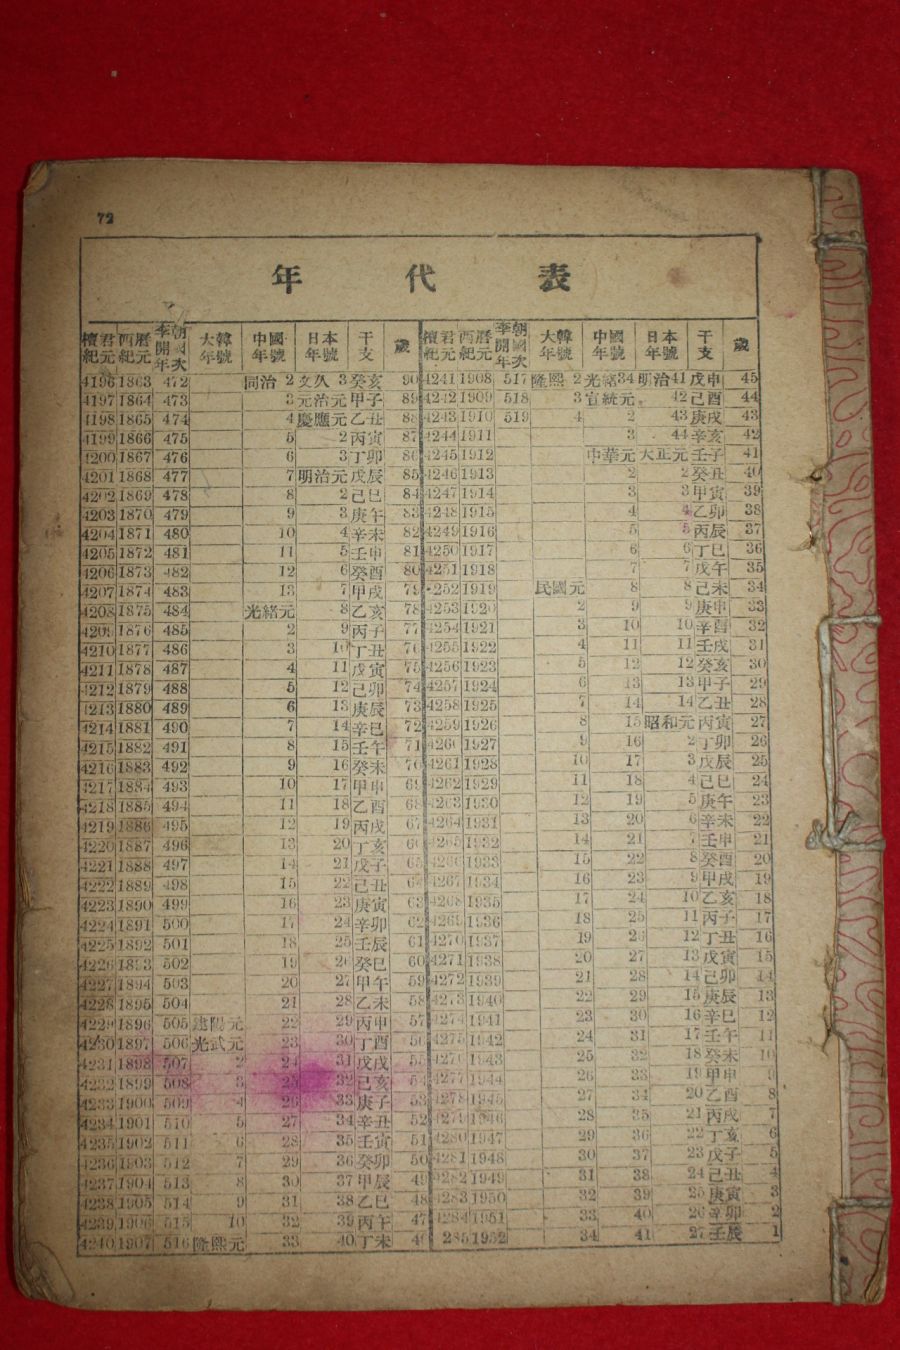 72
年代表
檀君紀元 西曆紀元 李朝開國年次 大韓年號 中國年號 日本年號 干支 歲 檀君紀元 西曆紀元 李朝開國年次 大韓年號 中國年號 日本年號 干支 歲
4196 1863 472 同治 2 文久 3 癸亥 90 4241 1908 517 隆熙 2 光緖34 明治41 戊申 45
4197 1864 473 3 元治元 甲子 89 4242 1909 518 3 宣統元 42 己酉 44
4198 1865 474 4 慶應元 乙丑 88 4243 1910 519 4 2 43 庚戌 43
4199 1866 475 5 2 丙寅 87 4244 1911 3 44 辛亥 42
4200 1867 476 6 3 丁卯 86 4245 1912 中華元 大正元 壬子 41
4201 1868 477 7 明治元 戊辰 85 4246 1913 2 2 癸丑 40
4202 1869 478 8 2 己巳 84 4247 1914 3 3 甲寅 39
4203 1870 479 9 3 庚午 83 4248 1915 4 4 乙卯 38
4204 1871 480 10 4 辛未 82 4249 1916 5 5 丙辰 37
4205 1872 481 11 5 壬申 81 4250 1917 6 6 丁巳 36
4206 1873 482 12 6 癸酉 80 4251 1918 7 7 戊午 35
4207 1874 483 13 7 甲戌 79 252 1919 民國元 8 8 己未 34
4208 1875 484 光緖元 8 乙亥 78 4253 1920 2 9 9 庚申 33
4209 1876 485 2 9 丙子 77 4254 1921 3 10 10 辛酉 32
4210 1877 486 3 10 丁丑 76 4255 1922 4 11 11 壬戌 31
4211 1878 487 4 11 戊寅 75 4256 1923 5 12 12 癸亥 30
4212 1879 488 5 12 己卯 74 4257 1924 6 13 13 甲子 29
4213 1880 489 6 13 庚辰 73 4258 1925 7 14 14 乙丑 28
4214 1881 490 7 14 辛巳 72 4259 1926 8 15 昭和元 丙寅 27
4215 1882 491 8 15 壬午 71 4260 1927 9 16 2 丁卯 26
4216 1883 492 9 16 癸未 70 4261 1928 10 17 3 戊辰 25
4217 1884 493 10 17 甲申 69 4262 1929 11 18 4 己巳 24
4218 1885 494 11 18 乙酉 68 4263 1930 12 19 5 庚午 23
4219 1886 495 12 19 丙戌 67 4264 1931 13 20 6 辛未 22
4220 1887 496 13 20 丁亥 66 4265 1932 14 21 7 壬申 21
4221 1888 497 14 21 戊子 65 4266 1933 15 22 8 癸酉 20
4222 1889 498 15 22 己丑 64 4267 1934 16 23 9 甲戌 19
4223 1890 499 16 23 庚寅 63 4268 1935 17 24 10 乙亥 18
4224 1891 500 17 24 辛卯 62 4269 1936 18 25 11 丙子 17
4225 1892 501 18 25 壬辰 61 4270 1937 19 26 12 丁丑 16
4226 1893 502 19 26 癸巳 60 4271 1938 20 27 13 戊寅 15
4227 1894 503 20 27 甲午 59 4272 1939 21 28 14 己卯 14
4228 1895 504 21 28 乙未 58 4273 1940 22 29 15 庚辰 13
4229 1896 505 建陽元 22 29 丙申 57 4274 1941 23 30 16 辛巳 12
4230 1897 506 光武元 23 30 丁酉 56 4275 1942 24 31 17 壬午 11
4231 1898 507 2 24 31 戊戌 55 4276 1943 25 32 18 癸未 10
4232 1899 508 3 25 32 己亥 54 4277 1944 26 33 19 甲申 9
4233 1900 509 4 26 33 庚子 53 4278 1945 27 34 20 乙酉 8
4234 1901 510 5 27 34 辛丑 52 4279 1946 28 35 21 丙戌 7
4235 1902 511 6 28 35 壬寅 51 4280 1947 29 36 22 丁亥 6
4236 1903 512 7 29 36 癸卯 50 4281 1948 30 37 23 戊子 5
4237 1904 513 8 30 37 甲辰 49 4282 1949 31 38 24 己丑 4
4238 1905 514 9 31 38 乙巳 48 4283 1950 32 39 25 庚寅 3
4239 1906 515 10 32 39 丙午 47 4284 1951 33 40 26 辛卯 2
4240 1907 516 隆熙元 33 40 丁未 46 285 1952 34 41 27 壬辰 1